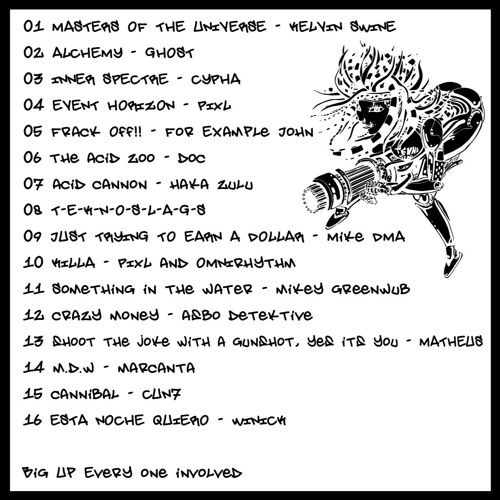 01 MASTERS OF THE UNIVERSE - KELVIN SWINE
02 ALCHEMY - GHOST
03 INNER SPECTRE - CYPHA
04 EVENT HORIZON - PIXL
05 FRACK OFF!! - FOR EXAMPLE JOHN
06 THE ACID ZOO - DOC
07 ACID CANNON - HAKA ZULU
08 T-E-K-N-O-S-L-A-G-S
09 JUST TRYING TO EARN A DOLLAR - MIKE DMA
10 KILLA - PIXL AND OMNIRHYTHM
11 SOMETHING IN THE WATER - MIKEY GREENWUB
12 CRAZY MONEY - ASBO DETEKTIVE
13 SHOOT THE JOKE WITH A GUNSHOT, YES ITS YOU - MATHEUS
14 M.D.W - MARCANTA
15 CANNIBAL - CUN7
16 ESTA NOCHE QUIERO - WINICK
BIG UP EVERY ONE INVOLVED